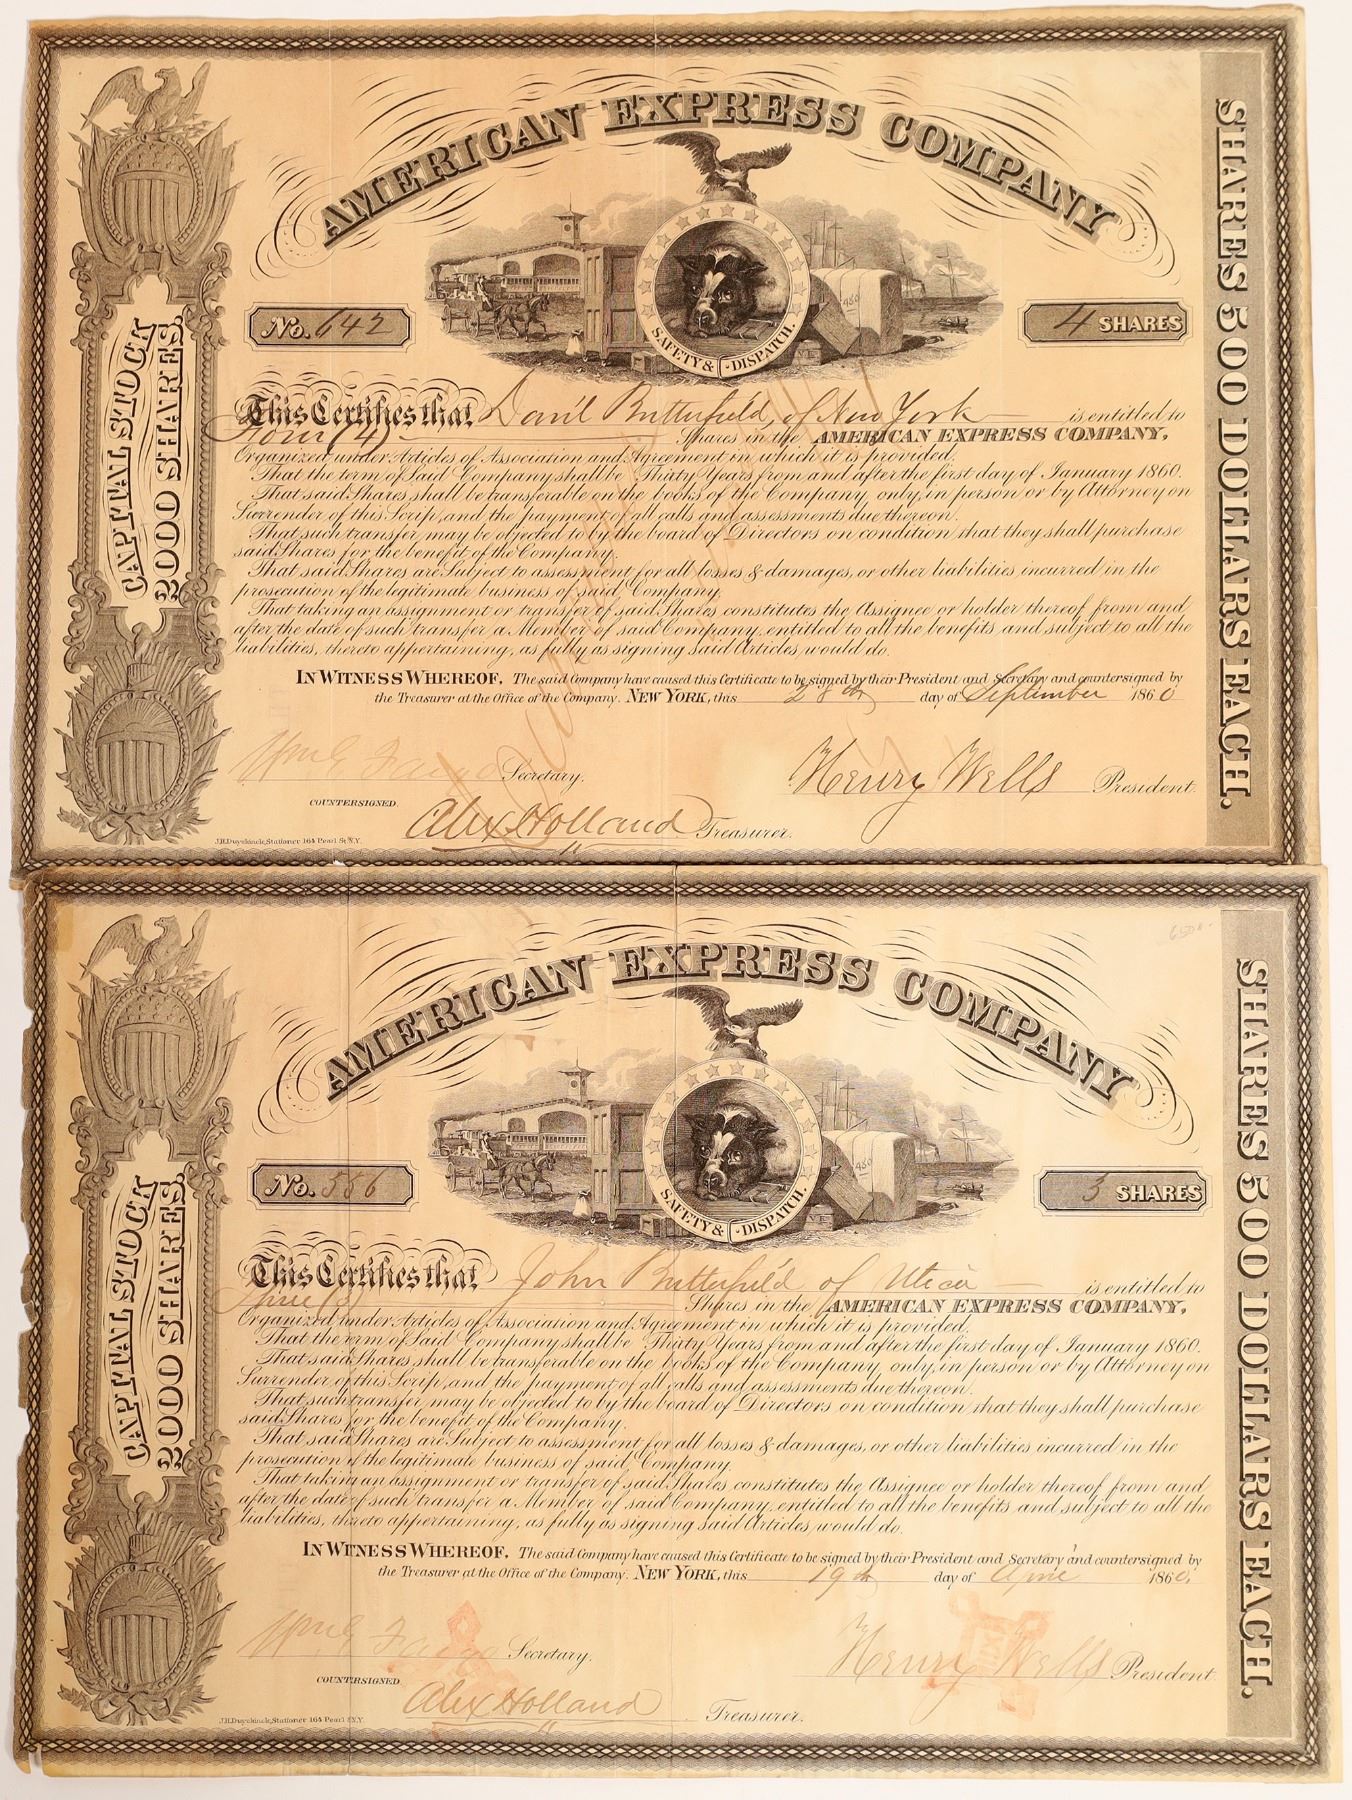 AMERICAN EXPRESS COMPANY
SHARES 500 DOLLARS EACH.
CAPITAL STOCK
2000 SHARES.
No. 642
480
SAFETY & DISPATCH.
4 SHARES
This Certifies that Dan'l Butterfield, of New York is entitled to
Four (4) Shares in the AMERICAN EXPRESS COMPANY,
Organized under Articles of Association and Agreement in which it is provided.
That the term of Said Company shall be Thirty Years from and after the first day of January 1860.
That said Shares shall be transferable on the books of the Company only, in person or by Attorney on
Surrender of this Scrip, and the payment of all calls and assessments due thereon.
That such transfer may be objected to by the board of Directors on condition that they shall purchase
said Shares for the benefit of the Company.
That said Shares are Subject to assessment for all losses & damages, or other liabilities incurred in the
prosecution of the legitimate business of said Company.
That taking an assignment or transfer of said Shares constitutes the Assignee or holder thereof from and
after the date of such transfer a Member of said Company entitled to all the benefits and subject to all the
liabilities, thereto appertaining, as fully as signing said Articles would do.
IN WITNESS WHEREOF, The said Company have caused this Certificate to be signed by their President and Secretary and countersigned by
the Treasurer at the Office of the Company. NEW YORK, this 28th day of September 1860
Wm G Fargo Secretary.
Henry Wells President.
COUNTERSIGNED.
Alex Holland Treasurer.
J.H. Duyckinck, Stationer 164 Pearl St N.Y.
AMERICAN EXPRESS COMPANY
SHARES 500 DOLLARS EACH.
CAPITAL STOCK
2000 SHARES.
No. 556
480
SAFETY & DISPATCH.
3 SHARES
This Certifies that John Butterfield of Utica is entitled to
Three (3) Shares in the AMERICAN EXPRESS COMPANY,
Organized under Articles of Association and Agreement in which it is provided.
That the term of Said Company shall be Thirty Years from and after the first day of January 1860.
That said Shares shall be transferable on the books of the Company only, in person or by Attorney on
Surrender of this Scrip, and the payment of all calls and assessments due thereon.
That such transfer may be objected to by the board of Directors on condition that they shall purchase
said Shares for the benefit of the Company.
That said Shares are Subject to assessment for all losses & damages, or other liabilities incurred in the
prosecution of the legitimate business of said Company.
That taking an assignment or transfer of said Shares constitutes the Assignee or holder thereof from and
after the date of such transfer a Member of said Company entitled to all the benefits and subject to all the
liabilities, thereto appertaining, as fully as signing said Articles would do.
IN WITNESS WHEREOF, The said Company have caused this Certificate to be signed by their President and Secretary and countersigned by
the Treasurer at the Office of the Company. NEW YORK, this 19th day of April 1860
Wm G Fargo Secretary.
Henry Wells President.
COUNTERSIGNED
Alex Holland Treasurer.
J.H. Duyckinck, Stationer 164 Pearl St N.Y.